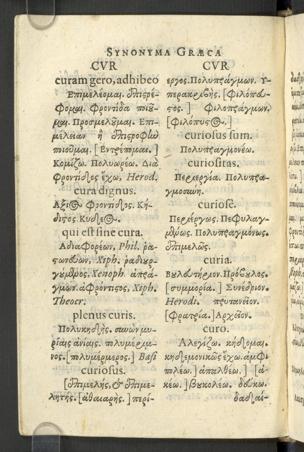 SYNONYMA GRÆCA
CVR CVR
curam gero, adhibeo
Ἐπιμελέομαι. ἐπιστρέ-
φομαι. Φροντίδα ποιοῦ-
μαι. Προσμελοῦμαι. Ἐπι-
μέλειαν ἢ ἐπιστροφὴν
ποιοῦμαι. [Ἐντρέπομαι.]
Κομίζω. Πολυωρέω. Διὰ
φροντίδος ἔχω, Herod.
cura dignus.
Ἄξιος Φροντίδος. Κή-
δειος. Κυδεος.
qui est sine cura.
Ἀδιαφορέων, Phil. ῥα-
Xiph. ῥαδιουρ-
γούμενος. Xenoph. ἀπρά-
γμων. ἀφρόντιςος, Xiph.
Theocr.
plenus curis.
Πολυκηδὴς.
πολυμέριμνος.] Bas.
curiosus.
[ἐπιμελής, & ἐπιμε-
λητής. [ περί-
εργος. Πολυπράγμων. Ὑ-
περακριβής. [Φιλόπευ-
ςος.] Φιλοπράγμων.
[Φιλόπυςος.]
curiosus sum.
Πολυπραγμονέω.
curiositas.
Περιεργία. Πολυπρα-
γμοσύνη.
curiosè.
Περιέργως. Πεφυλαγ-
μένως. Πολυπραγμόνως.
Ἐπιμελῶς.
curia.
Βουλευτήριον. Πρόβουλος.
[συμμορία.] Συνέδριον.
Herodi. πρυτανεῖον.
[Φρατρία. Ἀρχεῖον.
curo.
Ἀλεγίζω. κήδομαι.
κηδεμονικῶς ἔχω. ἀμφι-
πολέω. [ἀπαλθέω.] [ἀ-
κέω.] βουκολέω.